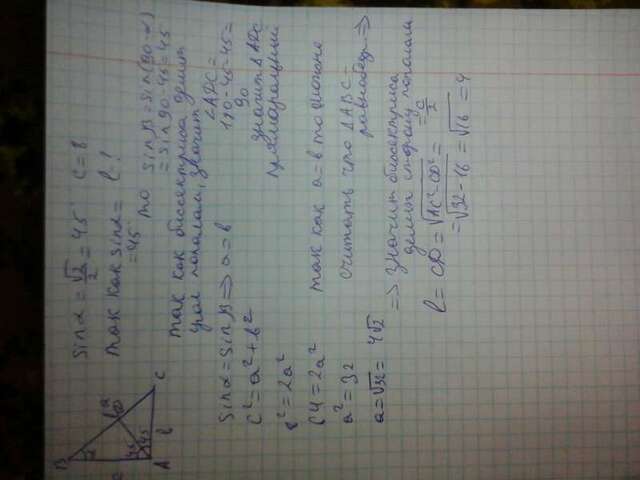 sin α = √2/2 = 45° c = 8
так как sin α = l - ?
= 45° то sin β = sin(90-α)
= sin 90-45 = 45
так как биссектриса делит
угол пополам, значит
∠ADC =
180-45-45 =
90
значит △ADC
прямоугольный
sin α = sin β ⇒ a = b
c² = a² + b²
c² = 2a²
64 = 2a² так как a = b то можно
a² = 32 считать что △ABC -
равнобедр. ⇒
a = √32 = 4√2
⇒ значит биссектриса
делит сторону пополам
= c/2
l = CD = √AC² - CD² =
= √32 - 16 = √16 = 4
B
a
D
C
45 45
A
b